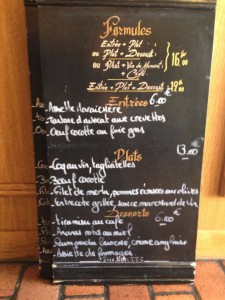 Formules
Entrée + Plat
ou Plat + Dessert
ou Plat + Vin du Moment
+ Café
Entrée + Plat + Dessert
Entrées 6.00 €
Assiette
Tartare d'avocat aux crevettes
Oeuf cocotte au foie gras
Plats 13.00 €
Coq au vin, tagliatelles
Filet de merlu, pommes écrasées aux olives
Entrecote grillée, sauce marchand de vin
Desserts 6.00 €
Tiramisu au café
Ananas roti au miel
crème anglaise
Assiette de fromages